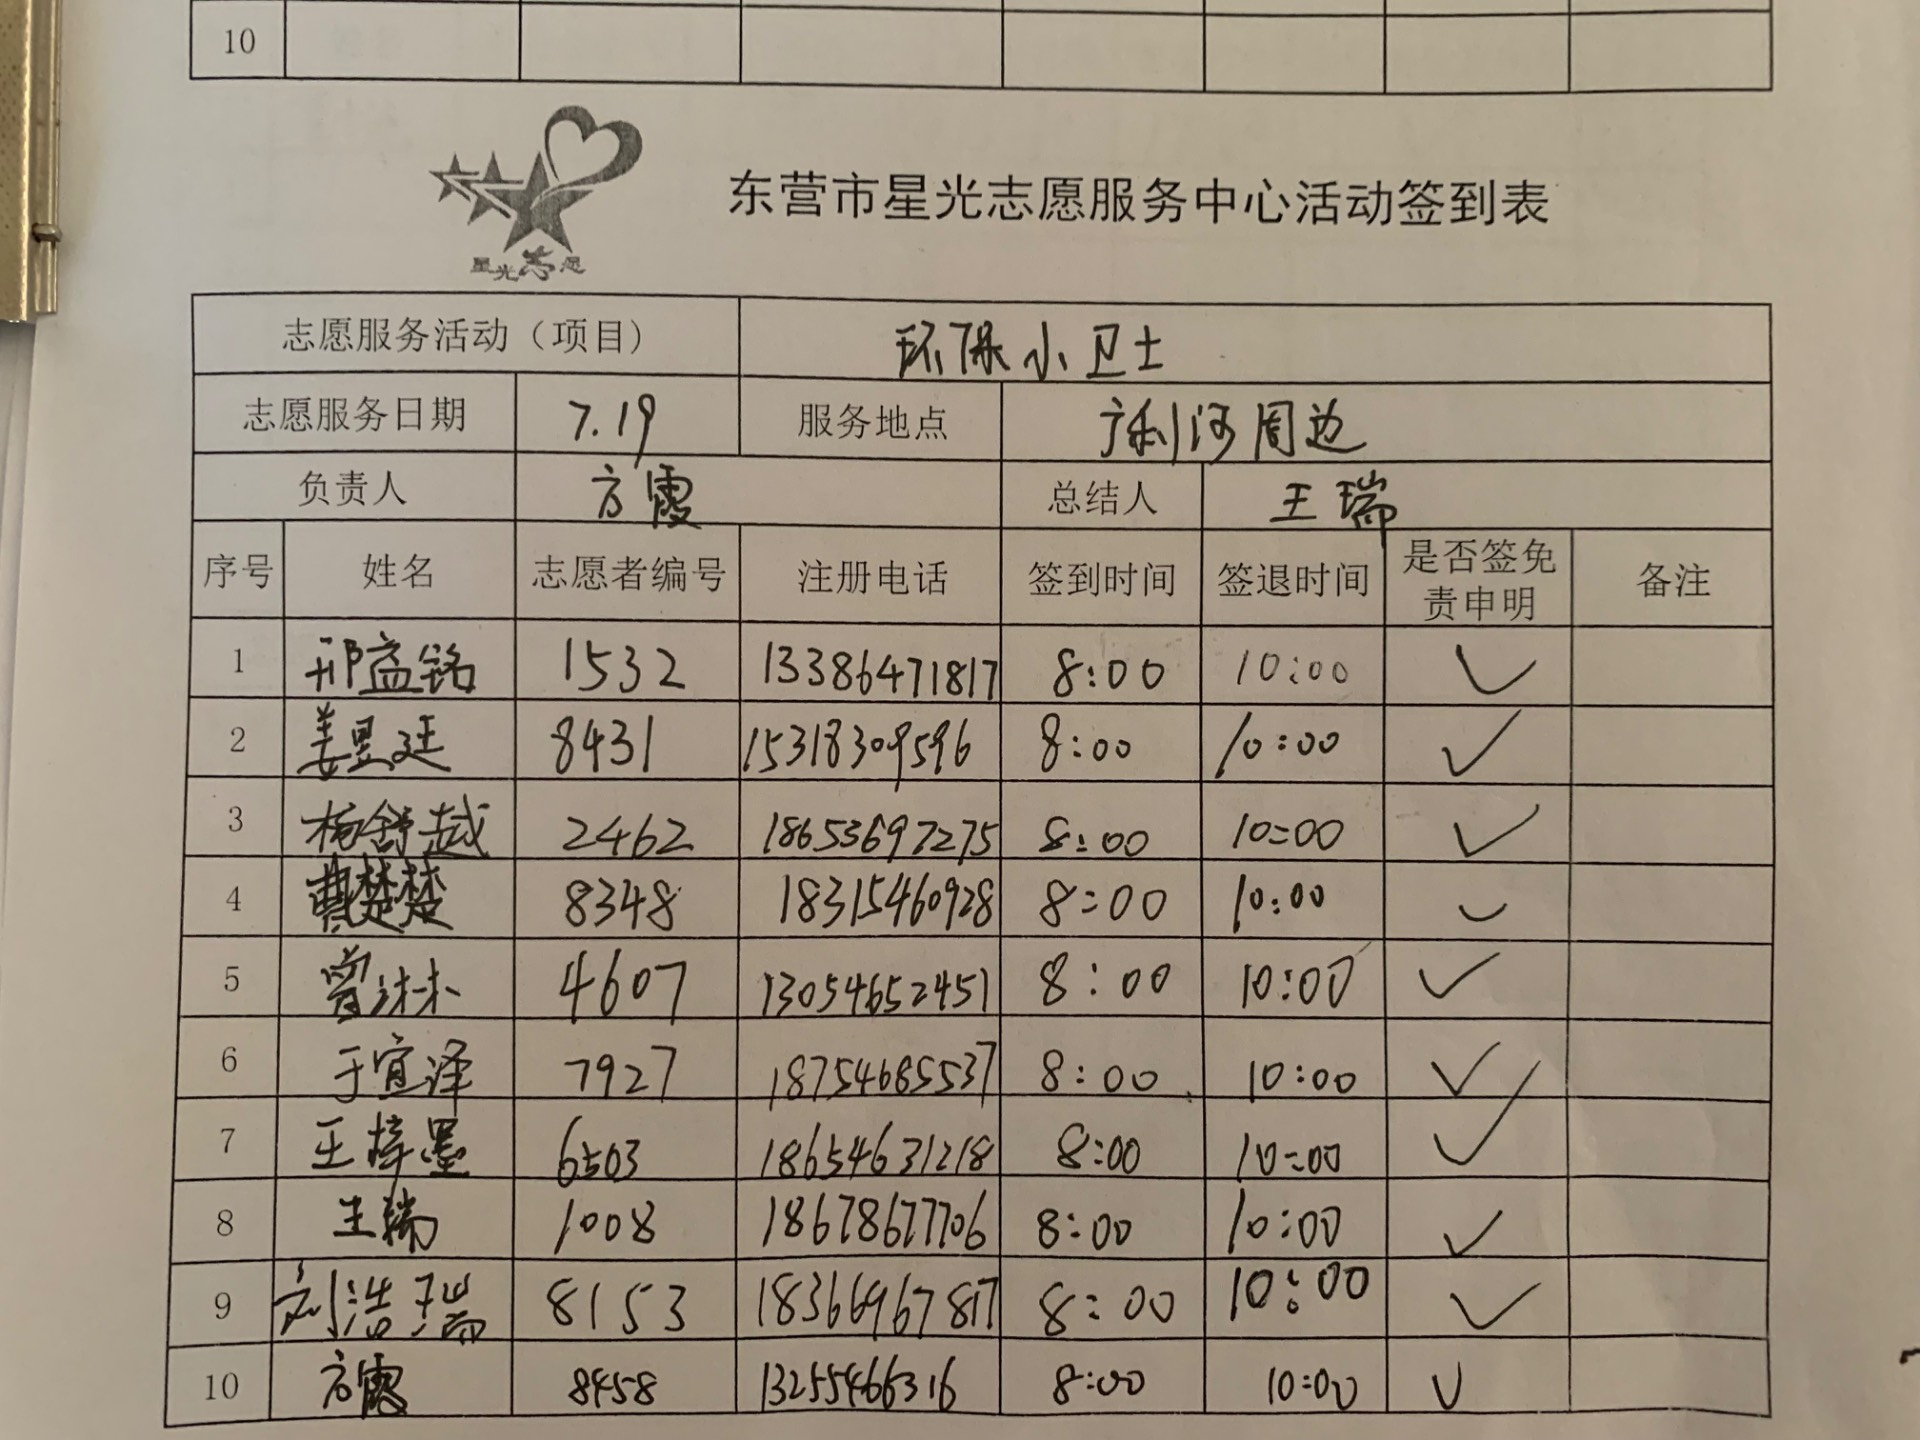 10
星光志愿
东营市星光志愿服务中心活动签到表
志愿服务活动（项目） 环保小卫士
志愿服务日期 7.19 服务地点 广利河周边
负责人 方霞 总结人 王瑞
序号 姓名 志愿者编号 注册电话 签到时间 签退时间 是否签免责申明 备注
1 邢益铭 1532 13386471817 8:00 10:00 ✓
2 姜昱廷 8431 15318309596 8:00 10:00 ✓
3 杨舒越 2462 18653697275 8:00 10:00 ✓
4 曹楚楚 8348 18315460928 8:00 10:00 ✓
5 曾沐林 4607 13054652451 8:00 10:00 ✓
6 于宜泽 7927 18754685537 8:00 10:00 ✓
7 王梓墨 6503 18654631218 8:00 10:00 ✓
8 王瑞 1008 18678677706 8:00 10:00 ✓
9 刘浩瑞 8153 18366967817 8:00 10:00 ✓
10 方霞 8458 13255466316 8:00 10:00 ✓